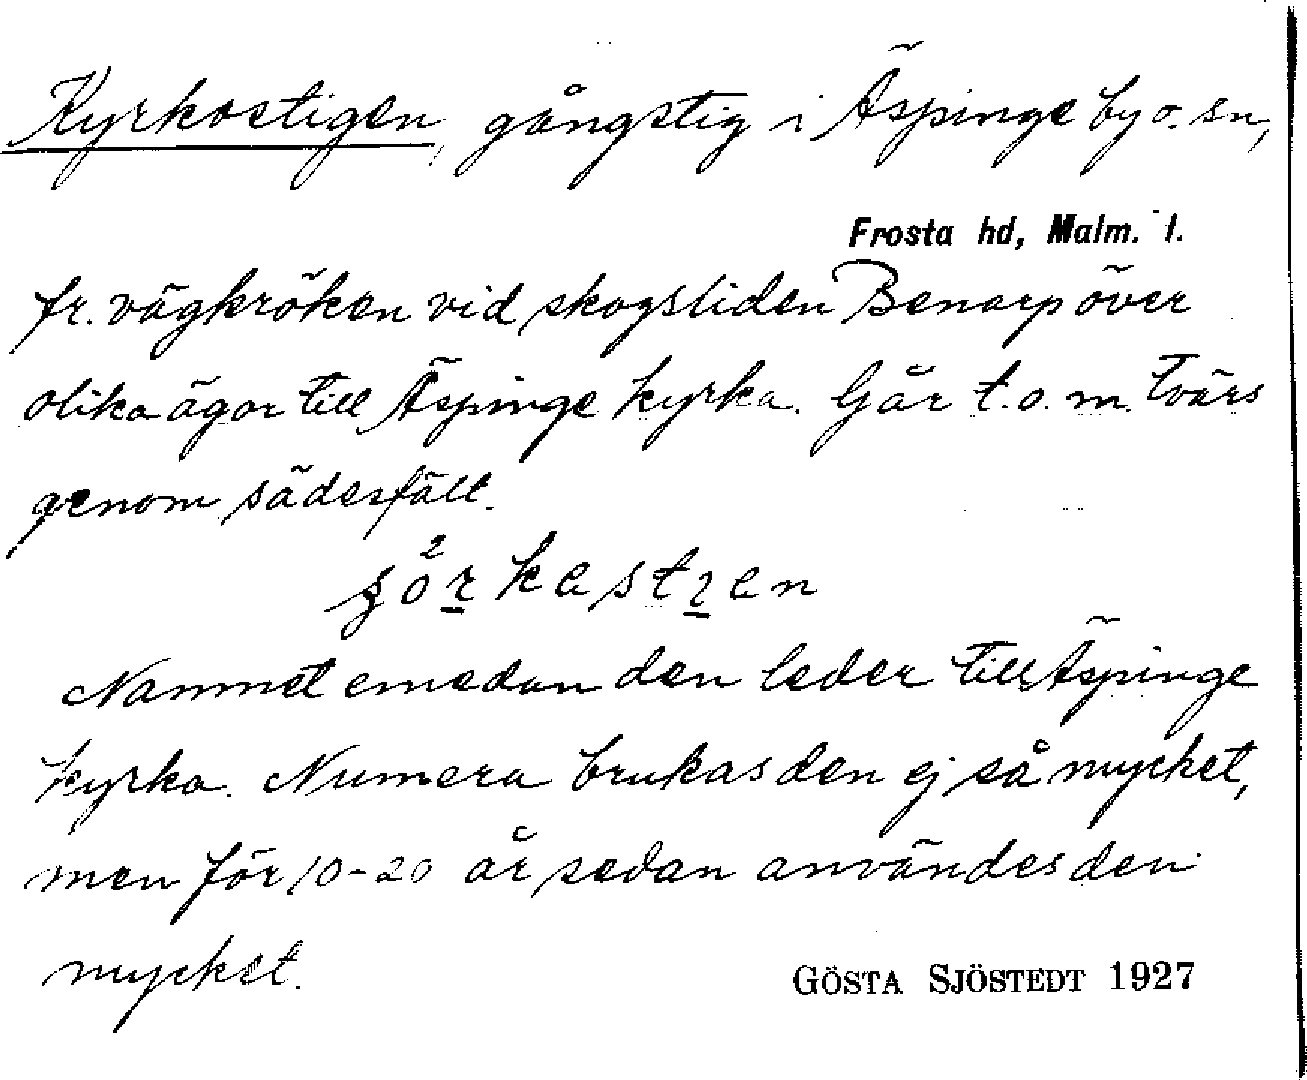 Kyrkostigen, gångstig i Äspinge by o. sn,
Frosta hd, Malm. l.
fr. vägkröken vid skogsliden Benarp över
olika ägor till Äspinge kyrka. Går t.o.m. tvärs
genom sädesfält.
Namnet emedan den leder till Äspinge
kyrka. Numera brukas den ej så mycket,
men för 10-20 år sedan användes den
mycket.
GÖSTA SJÖSTEDT 1927